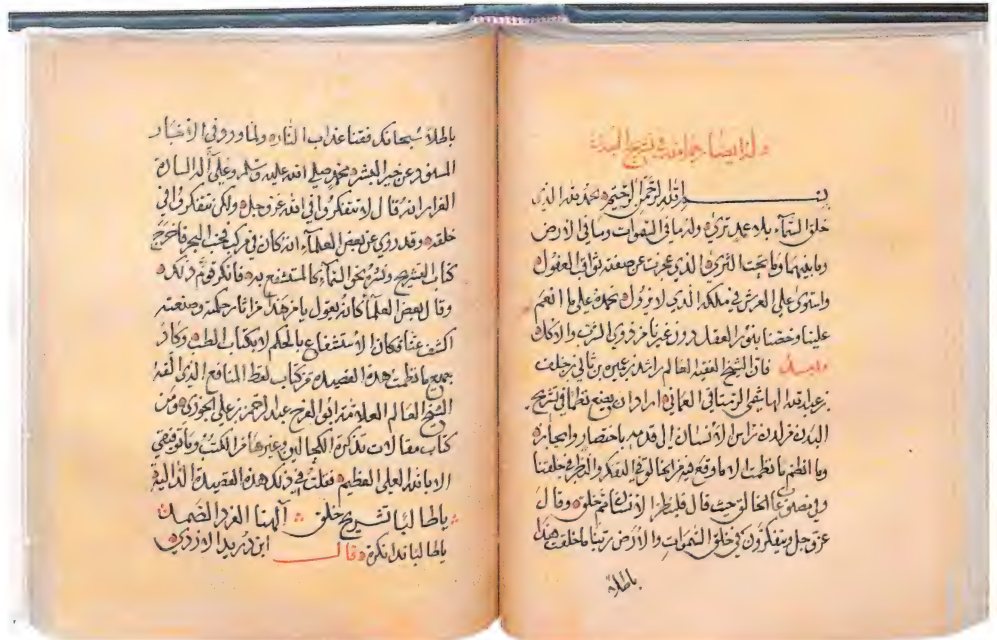 وله ايضا رحمه الله في تشريح البدن
بسم الله الرحمن الرحيم نحمد الله الذي
خلق السمآء بلا عمد ترى وله ما في السموات وما في الارض
وما بينهما وما تحت الثرى الذي عزبت عن صفته ثواقب العقول
واستوى على العرش في ملكه الذي لا يزول نحمده على ما انعم
علينا وخصنا بنور العقل دون غيرنا من ذوي الشرب والاكل
وبعد فان الشيخ الفقيه العالم راشد بن عميره بن ثاني بن خلف
بن عبد الله الهاشمي الرستاقي العماني اراد ان يصنع نظما في تشريح
البدن من لدن راس الانسان الى قدميه باختصار وايجاز
وما انظم ما نظمت الا ما وقع فيه من الخالق في التفكر والنظر في خلقتنا
وفي مصنوعات الخالق حيث قال فلينظر الانسان مم خلق وقال
عز وجل ويتفكرون في خلق السموات والارض ربنا ما خلقت هذا
باطلا
باطلا سبحانك فقنا عذاب النار ولما ورد في الاخبار
عن خير البشر محمد صلى الله عليه وسلم وعلى آله السادة
انه قال لا تتفكروا في الله عز وجل ولكن تتفكروا في
خلقه وقد روي عن بعض العلمآء انه كان في مركب فخب البحر فاخرج
كتاب التشريح ونشره نحو السمآء كالمستشفع به فانكر قوم ذلك
وقال بعض العلمآ كانه يقول يا من هذا من اثار حكمته وصنعته
اكشف عنا فكان الاستشفاع بالحكم لا بكتاب الطب وكان
جميع ما نظمت هذه القصيدة من كتاب لقط المنافع الذي الفه
الشيخ العالم العلامة ابو الفرج عبد الرحمن بن علي الجوزي ومن
كتاب مقالات تذكرة الكحالين وغيرها من الكتب وما توفيقي
الا بالله العلي العظيم فقلت في ذلك هذه القصيدة الدالية
يا طالبا تشريح خلق آلهنا الفرد الصمد
يا طالبا فدانكرة وقال ابن دريد الازدي